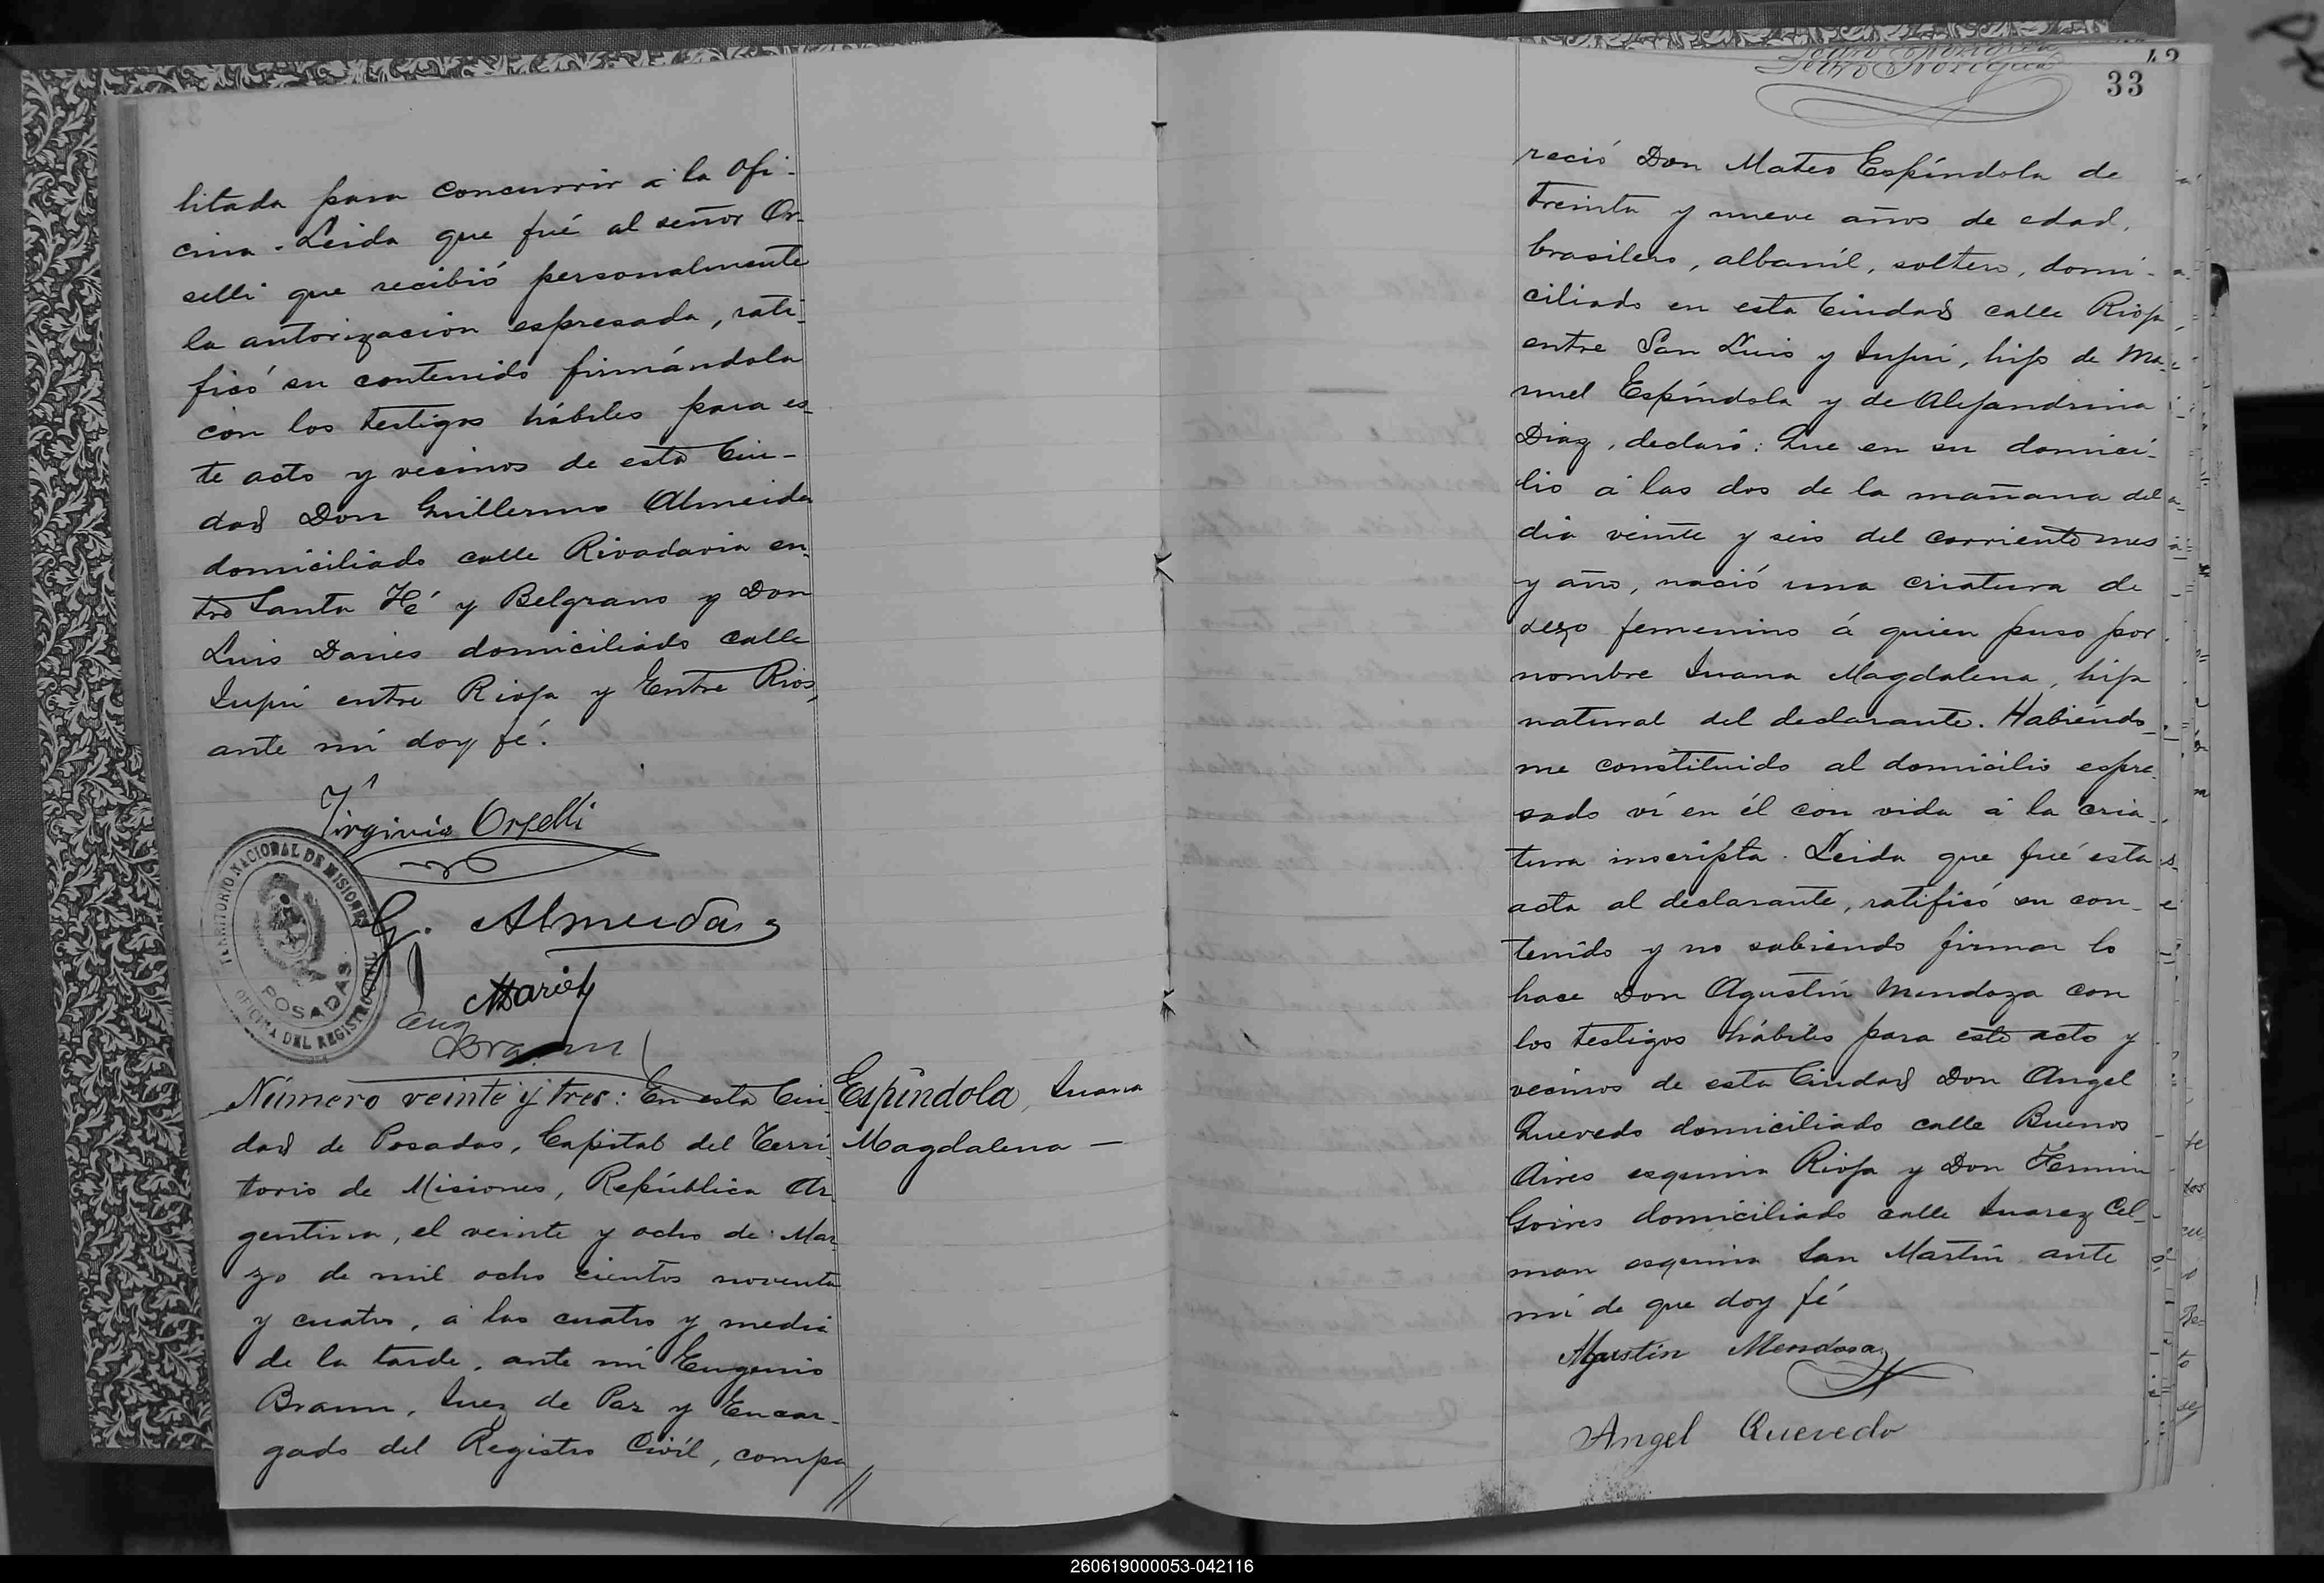 litada para concurrir á la Ofi-
cina. Leida que fué al señor Or-
selli que recibió personalmente
la autorizacion espresada, rati-
ficó su contenido firmándola
con los testigos hábiles para es-
te acto y vecinos de esta Ciu-
dad Don Guillermo Almeida
domiciliado calle Rivadavia en-
tre Santa Fé y Belgrano y Don
Luis Daries domiciliado calle
Jujui entre Rioja y Entre Rios,
ante mí doy fé.
Virginio Orselli
G. Almeida
Eug Braun
TERRITORIO NACIONAL DE MISIONES
POSADAS
OFICINA DEL REGISTRO CIVIL
Número veinte y tres: En esta Ciu
dad de Posadas, Capital del Terri-
torio de Misiones, República Ar-
gentina, el veinte y ocho de Mar-
zo de mil ocho cientos noventa
y cuatro, á las cuatro y media
de la tarde, ante mí Eugenio
Braun, Juez de Paz y Encar-
gado del Registro Civíl, compa
//
Espíndola, Juana
Magdalena —
33
reció Don Mateo Espíndola de
treinta y nueve años de edad,
brasilero, albañil, soltero, domi-
ciliado en esta Ciudad calle Rioja
entre San Luis y Jujui, hijo de Ma-
nuel Espíndola y de Alejandrina
Diaz, declaró: Que en su domici-
lio á las dos de la mañana del
dia veinte y seis del corriente mes
y año, nació una criatura de
sexo femenino á quien puso por
nombre Juana Magdalena, hija
natural del declarante. Habiendo-
me constituido al domicilio espre-
sado ví en él con vida á la cria-
tura inscripta. Leida que fué esta
acta al declarante, ratificó su con-
tenido y no sabiendo firmar lo
hace Don Agustin Mendoza con
los testigos hábiles para este acto y
vecinos de esta Ciudad Don Angel
Quevedo domiciliado calle Buenos
Aires esquina Rioja y Don Fermin
Goires domiciliado calle Juarez Cel-
man esquina San Martin ante
mí de que doy fé
Agustin Mendosa
Angel Quevedo
260619000053-042116